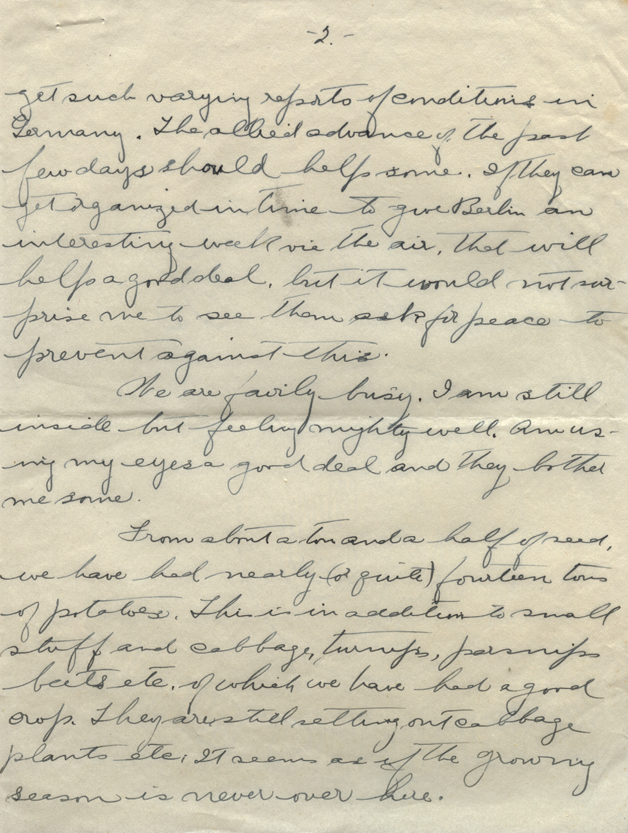 -2.-
get such varying reports of conditions in
Germany. The allied advance of the past
few days should help some. If they can
get organized in time to give Berlin an
interesting week via the air, that will
help a good deal, but it would not sur-
prise me to see them ask for peace to
prevent against this.
We are fairly busy. I am still
inside but feeling mighty well. Am us-
ing my eyes a good deal and they bother
me some.
From about a ton and a half of seed,
we have had nearly (or quite) fourteen tons
of potatoes. This is in addition to small
stuff and cabbage, turnips, parsnips
beets etc. of which we have had a good
crop. They are still setting out cabbage
plants etc. It seems as if the growing
season is never over here.